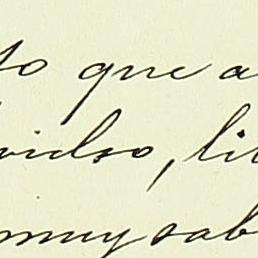 to que a
vidso, lit
muy sab